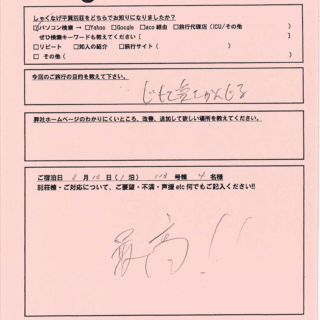 しゃくなげ平貸別荘をどちらでお知りになりましたか?
☑パソコン検索 → □Yahoo □Google □aco 経由 □旅行代理店（ICU/その他　）
ぜひ検索キーワードも教えてください［　］
□リピート □知人の紹介 □旅行サイト（　）
□ その他（　）
今回のご旅行の目的を教えて下さい。
弊社ホームページのわかりにくいところ、改善、追加して欲しい場所を教えてください。
ご宿泊日 8月 日（1泊） 号棟 4名様
別荘棟・ご対応について、ご要望・不満・声援 etc 何でもご記入ください!!
最高!!